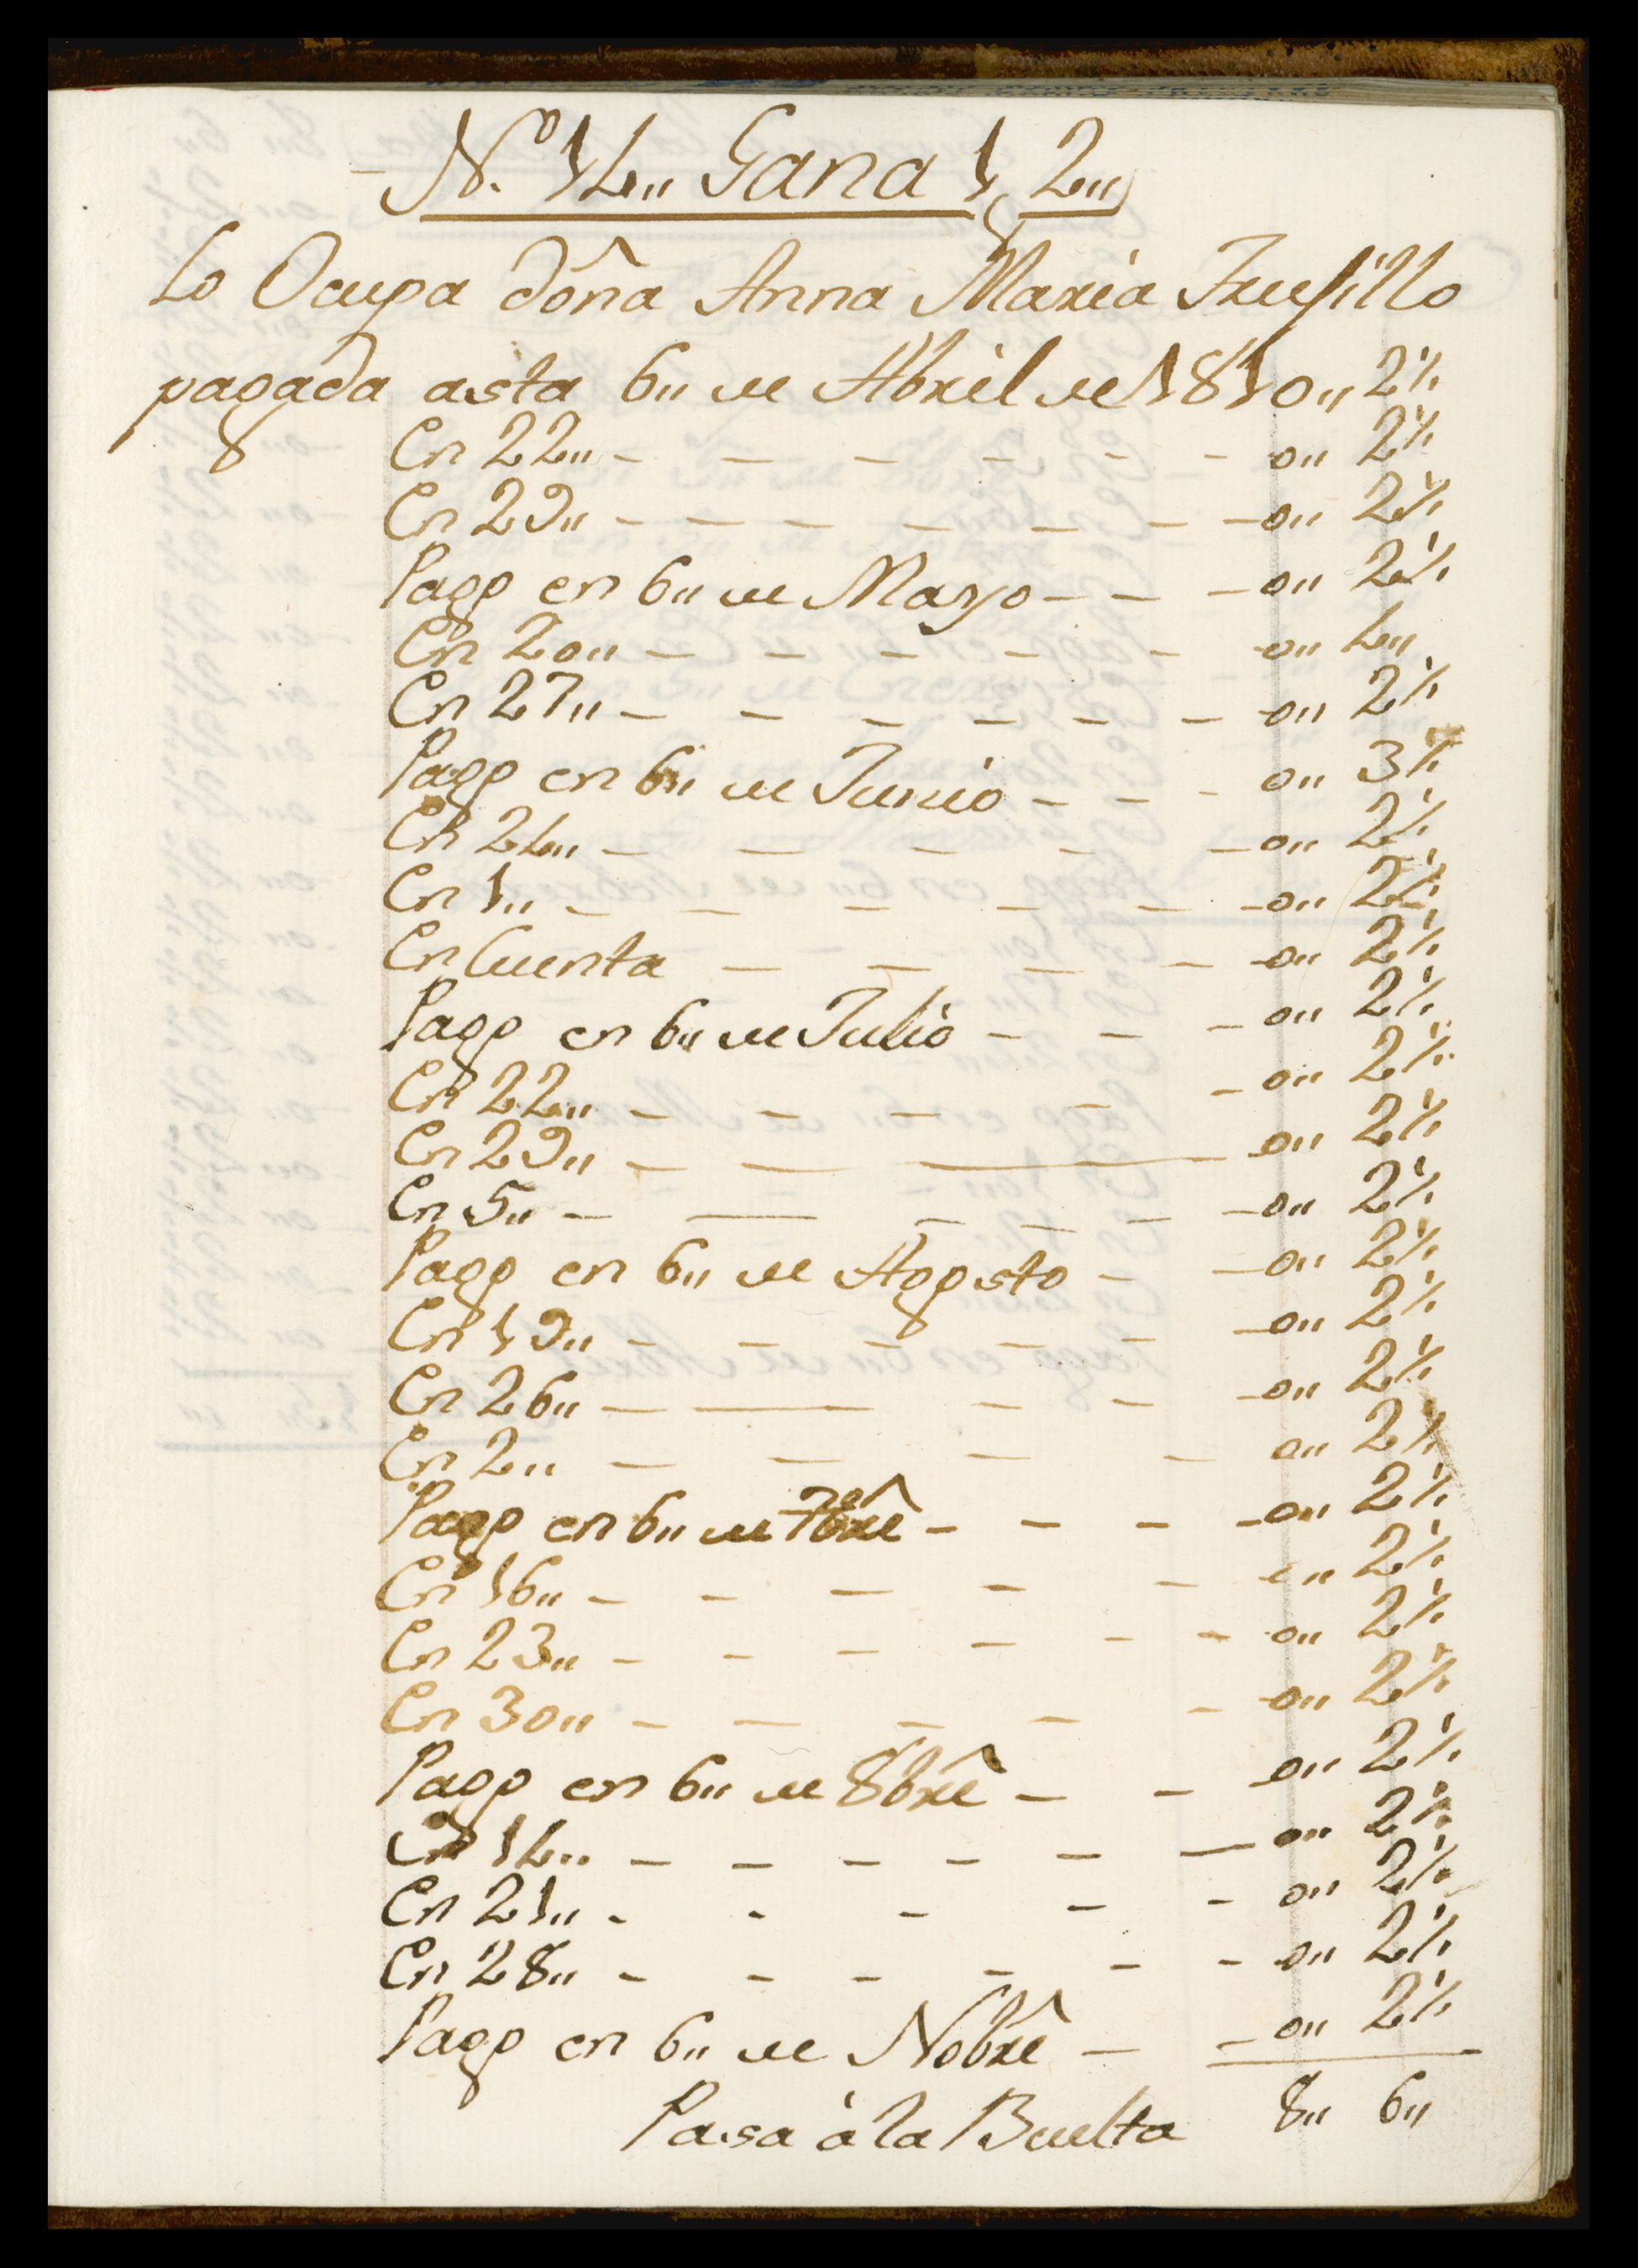 N.º 14,, Gana 1, 2,,
Lo Ocupa doña Anna Maria Truxillo
pagada asta 6,, de Abril de 1810,, 2½
En 22,, - - - - - - 0,, 2½
En 29,, - - - - - - 0,, 2½
Pago en 6,, de Mayo - - - 0,, 2½
En 20,, - - - - - 0,, 4,,
En 27,, - - - - - - 0,, 2½
Pago en 6,, de Junio - - - 0,, 3½
En 24,, - - - - - 0,, 2½
En 1,, - - - - - - 0,, 2½
En Cuenta - - - - 0,, 2½
Pago en 6,, de Julio - - - 0,, 2½
En 22,, - - - - - 0,, 2½
En 29,, - - - 0,, 2½
En 5,, - - - - - - 0,, 2½
Pago en 6,, de Agosto - - 0,, 2½
En 19,, - - - - - - 0,, 2½
En 26,, - - - - - 0,, 2½
En 2,, - - - - 0,, 2½
Pago en 6,, de 7bre - - - - 0,, 2½
En 16,, - - - - - 0,, 2½
En 23,, - - - - - - 0,, 2½
En 30,, - - - - - 0,, 2½
Pago en 6,, de 8bre - - 0,, 2½
En 14,, - - - - - - 0,, 2½
En 21,, - - - - - 0,, 2½
En 28,, - - - - - - 0,, 2½
Pago en 6,, de Nobre - - 0,, 2½
Pasa à la Buelta 8,, 6,,